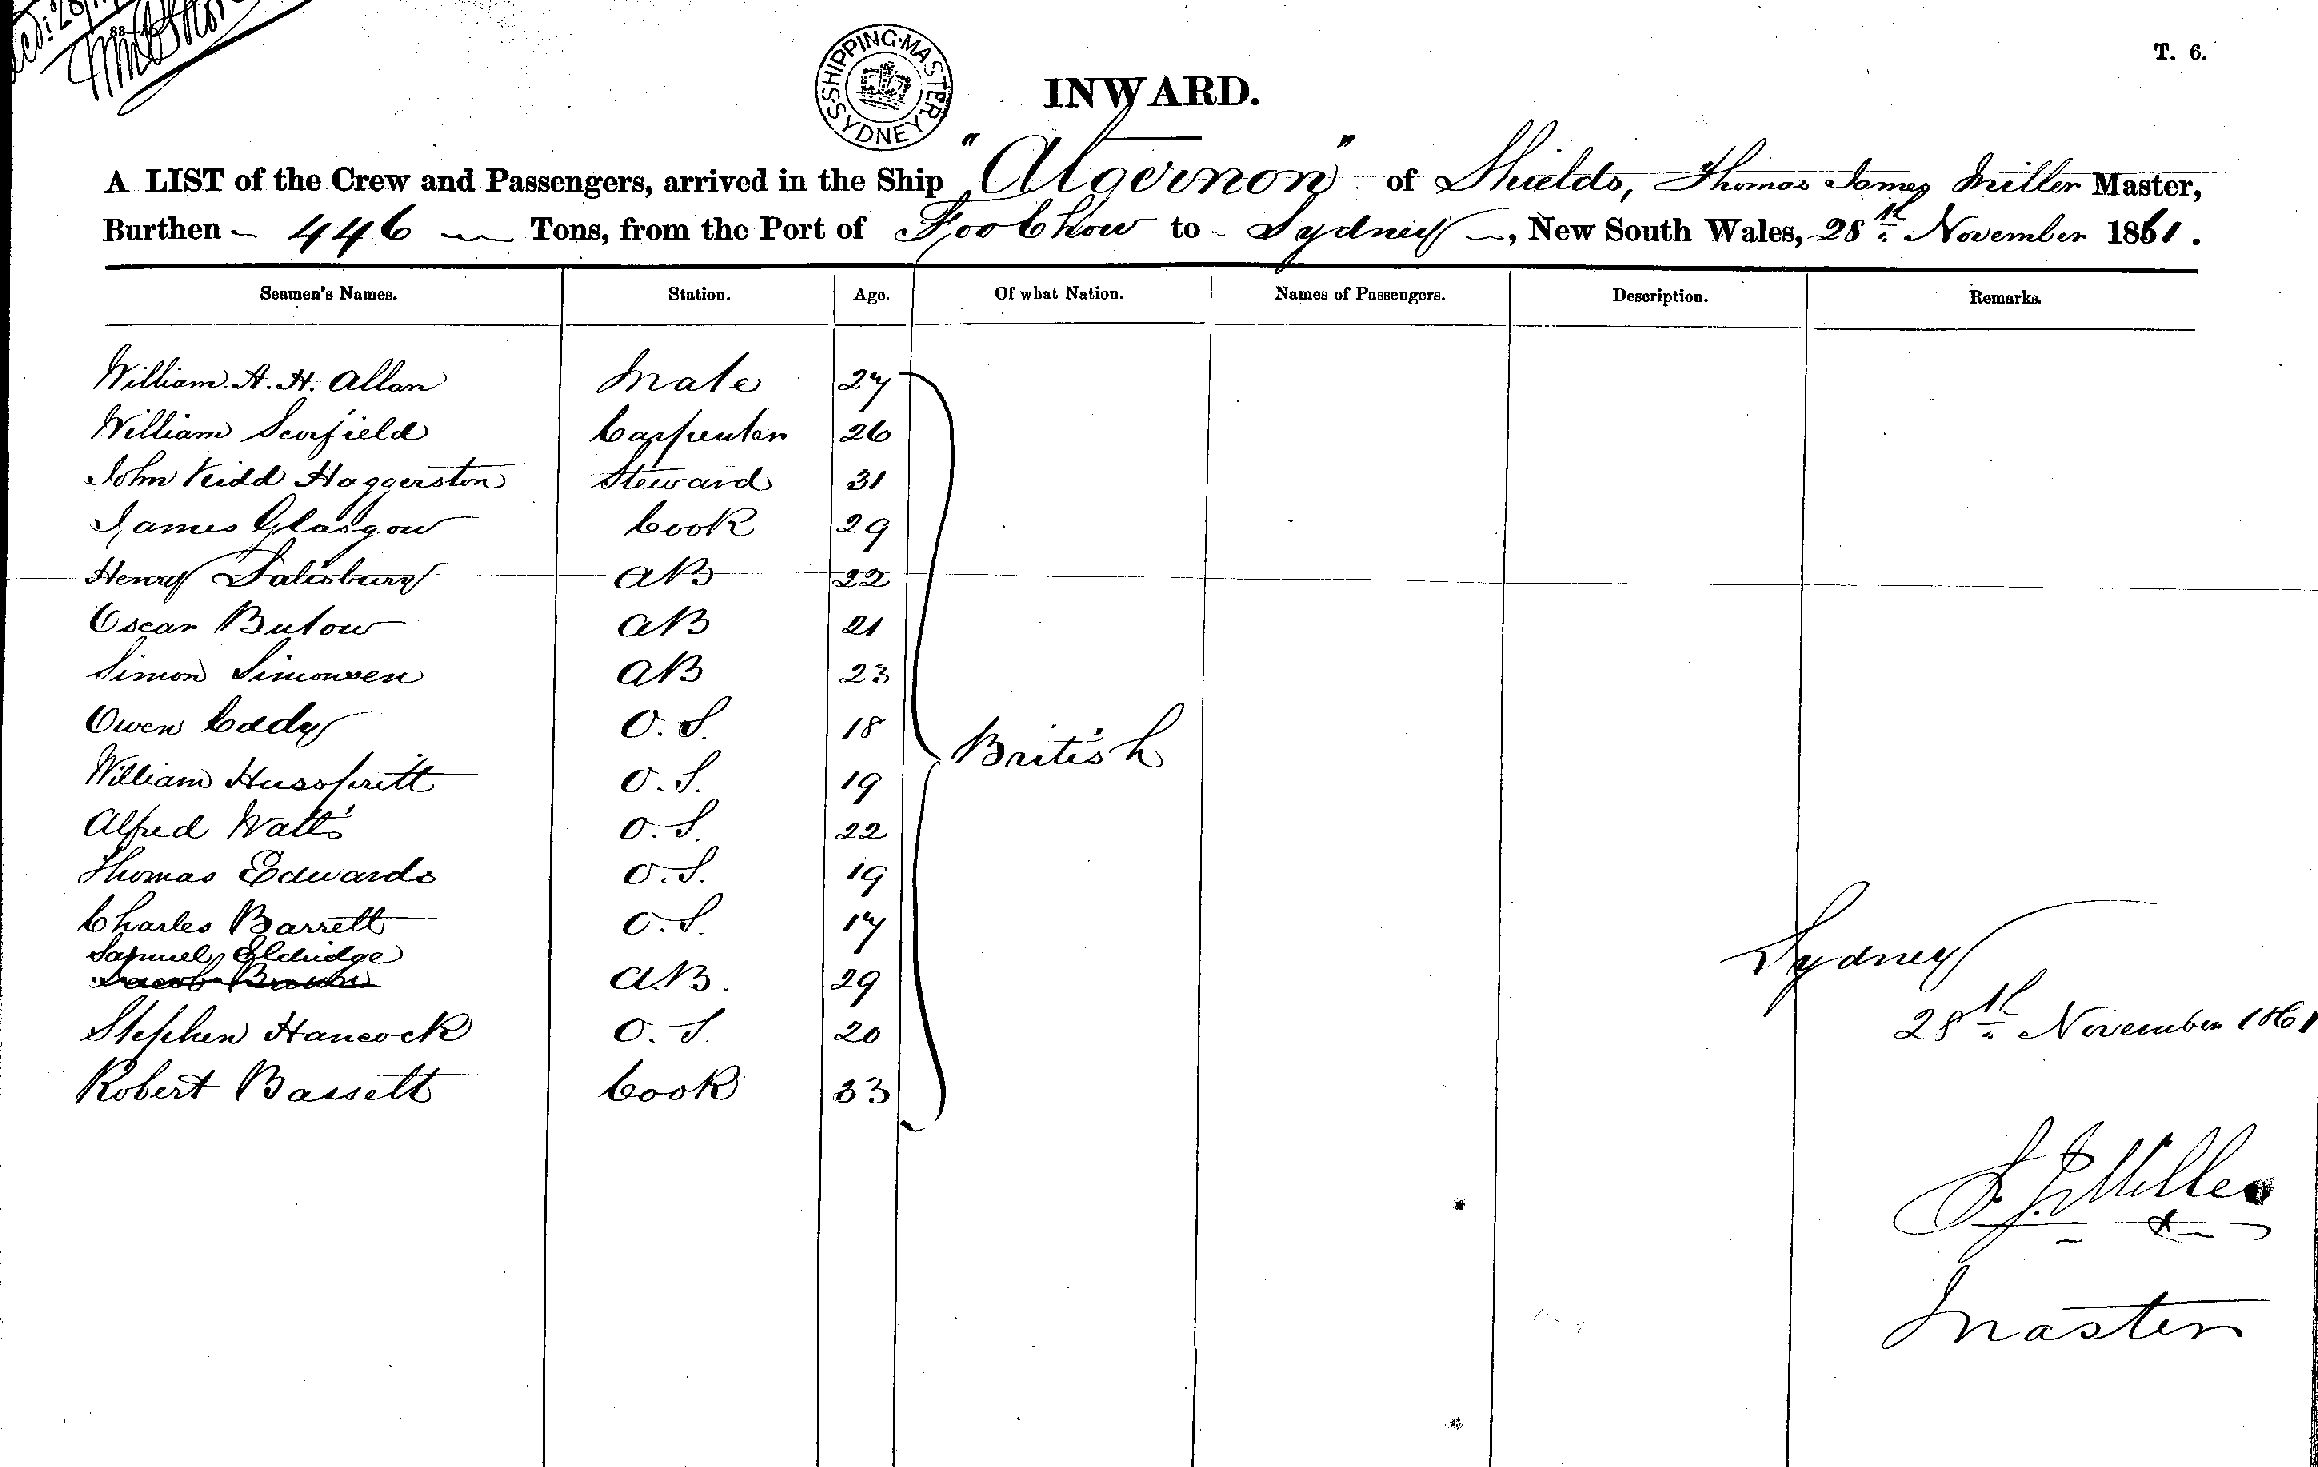 T. 6.
SHIPPING MASTER SYDNEY
INWARD.
A LIST of the Crew and Passengers, arrived in the Ship "Algernon" of Shields, Thomas James Miller Master,
Burthen 446 Tons, from the Port of Foo Chow to Sydney, New South Wales, 28th November 1861.
Seamen's Names. Station. Age. Of what Nation. Names of Passengers. Description. Remarks.
William A. H. Allan Mate 27
William Scorfield Carpenter 26
John Kidd Haggerston Steward 31
James Glasgow Cook 29
Henry Salisbury AB 22
Oscar Bulow AB 21
Simon Simonsen AB 23
Owen Eady O.S. 18
British
William Hussfritt O.S. 19
Alfred Watts O.S. 22
Thomas Edwards O.S. 19
Charles Barrett O.S. 17
Samuel Eldridge
AB. 29
Stephen Hancock O.S. 20
Robert Bassett Cook 33
Sydney
28th November 1861
T. J. Miller
Master